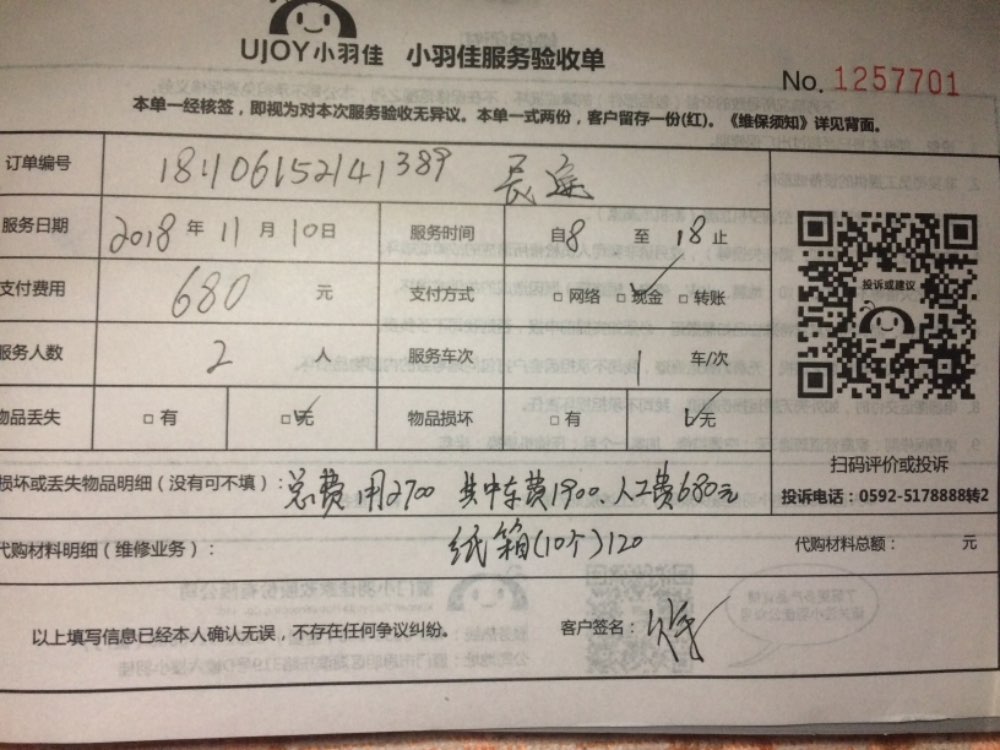 UJOY小羽佳 小羽佳服务验收单
No. 1257701
本单一经核签，即视为对本次服务验收无异议。本单一式两份，客户留存一份(红)。《维保须知》详见背面。
订单编号 181106152141389 长途
服务日期 2018 年 11 月 10 日 服务时间 自8 至 18 止
支付费用 680 元 支付方式 □ 网络 □ 现金 □ 转账
服务人数 2 人 服务车次 1 车/次
物品丢失 □ 有 □ 无 物品损坏 □ 有 无
投诉或建议
扫码评价或投诉
投诉电话：0592-5178888转2
损坏或丢失物品明细（没有可不填）：总费用2700 其中车费1900、人工费680元
纸箱(10个)120
代购材料明细（维修业务）： 代购材料总额： 元
以上填写信息已经本人确认无误，不存在任何争议纠纷。 客户签名：